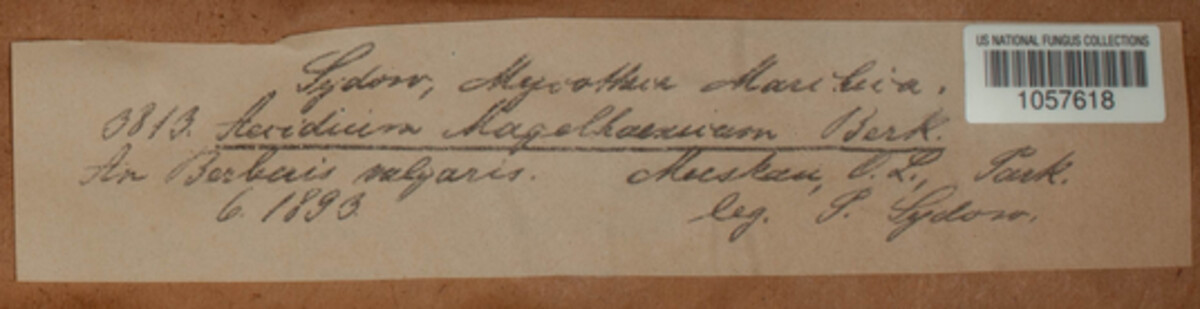 US NATIONAL FUNGUS COLLECTIONS
1057618
Sydow, Mycotheca Marchica.
3813. Aecidium Magelhaenicum Berk.
An Berberis vulgaris. Muskau, O. L., Park.
6. 1893. leg. P. Sydow.